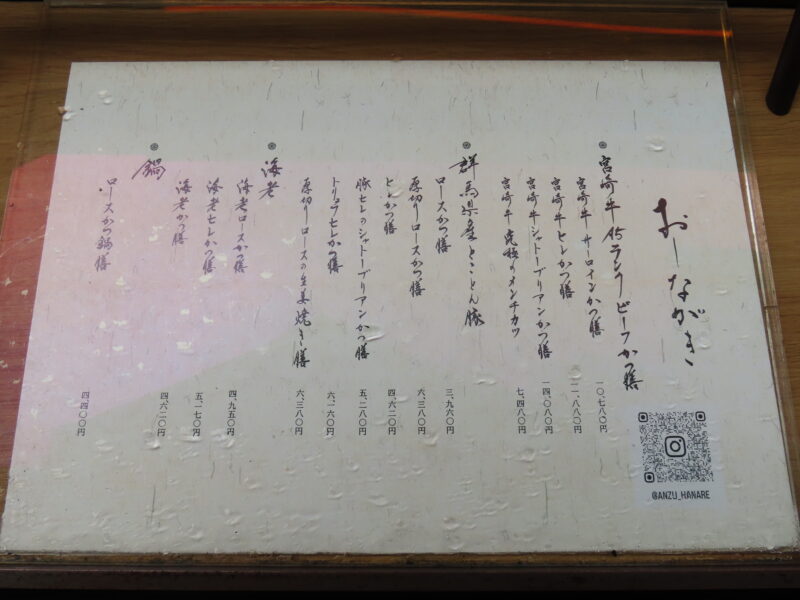 おしながき
宮崎牛A5ランクビーフかつ膳
宮崎牛サーロインかつ膳 一〇、七八〇円
宮崎牛ヒレかつ膳 一二、八八〇円
宮崎牛シャトーブリアンかつ膳 一四、〇八〇円
宮崎牛究極のメンチカツ 七、四八〇円
群馬県産とことん豚
ロースかつ膳 三、九六〇円
厚切りロースかつ膳 六、三八〇円
ヒレかつ膳 四、六二〇円
豚ヒレのシャトーブリアンかつ膳 五、二八〇円
トリュフヒレかつ膳 六、一六〇円
厚切りロースの生姜焼き膳 六、三八〇円
海老
海老ロースかつ膳 四、九五〇円
海老ヒレかつ膳 五、一七〇円
海老かつ膳 四、六二〇円
鍋
ロースかつ鍋膳 四、四〇〇円
@ANZU_HANARE